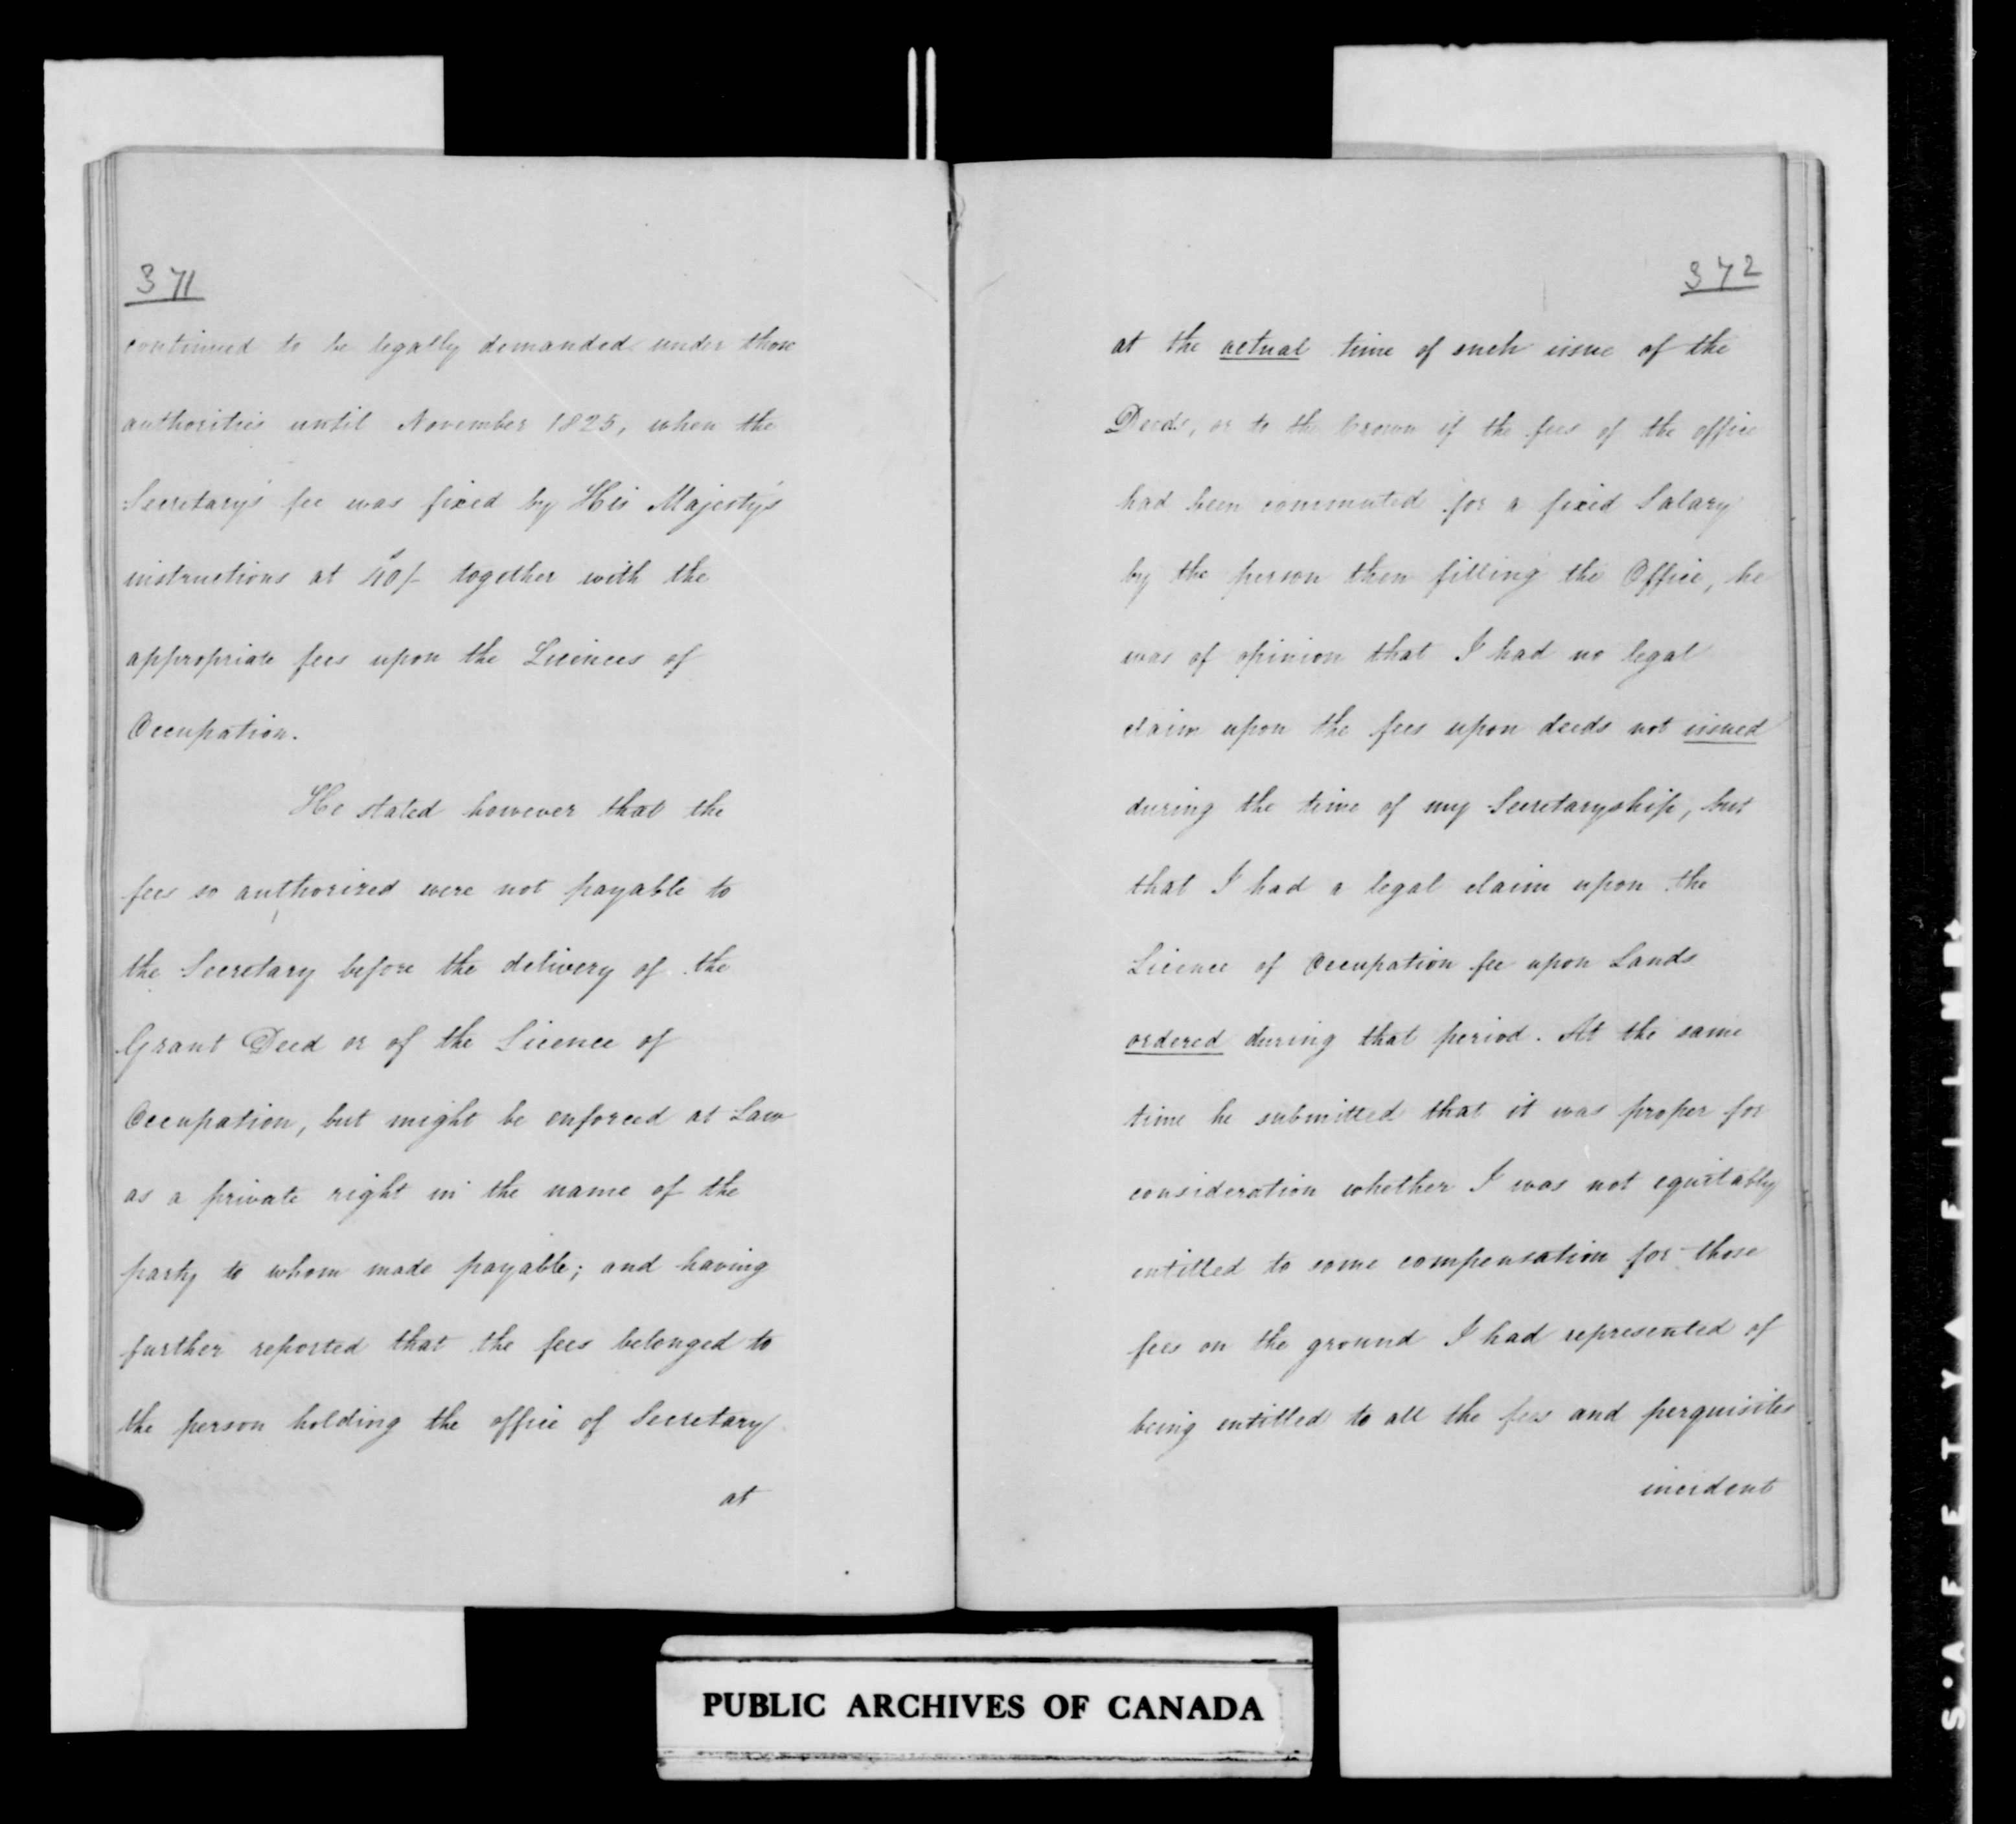 371
continued to be legally demanded under those
authorities until November 1825, when the
Secretary's fee was fixed by His Majesty's
instructions at 40s/- together with the
appropriate fees upon the Licences of
Occupation.
He stated however that the
fees so authorized were not payable to
the Secretary before the delivery of the
Grant Deed or of the Licence of
Occupation, but might be enforced at Law
as a private right in the name of the
party to whom made payable; and having
further reported that the fees belonged to
the person holding the office of Secretary
at
372
at the actual time of such issue of the
Deeds, or to the Crown if the fees of the office
had been commuted for a fixed Salary
by the person then filling the Office, he
was of opinion that I had no legal
claim upon the fees upon deeds not issued
during the time of my Secretaryship, but
that I had a legal claim upon the
Licence of Occupation fee upon Lands
ordered during that period. At the same
time he submitted that it was proper for
consideration whether I was not equitably
entitled to some compensation for those
fees on the ground I had represented of
being entitled to all the fees and perquisites
incident
PUBLIC ARCHIVES OF CANADA
S·A F E T Y ▲ F I L M